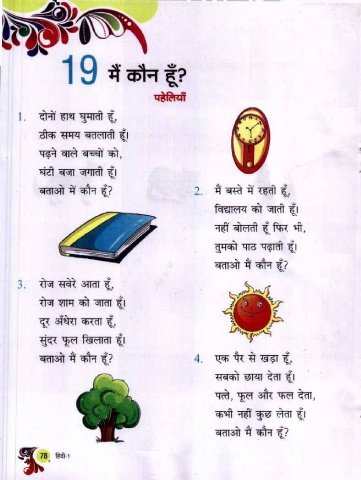 19 मैं कौन हूँ?
पहेलियाँ
1. दोनों हाथ घुमाती हूँ,
ठीक समय बतलाती हूँ।
पढ़ने वाले बच्चों को,
घंटी बजा जगाती हूँ।
बताओ में कौन हूँ?
2. मैं बस्ते में रहती हूँ,
विद्यालय को जाती हूँ।
नहीं बोलती हूँ फिर भी,
तुमको पाठ पढ़ाती हूँ।
बताओ मैं कौन हूँ?
3. रोज सवेरे आता हूँ,
रोज शाम को जाता हूँ।
दूर अँधेरा करता हूँ,
सुंदर फूल खिलाता हूँ।
बताओ मैं कौन हूँ?
4. एक पैर से खड़ा हूँ,
सबको छाया देता हूँ।
पत्ते, फूल और फल देता,
कभी नहीं कुछ लेता हूँ।
बताओ मैं कौन हूँ?
78 हिंदी-1